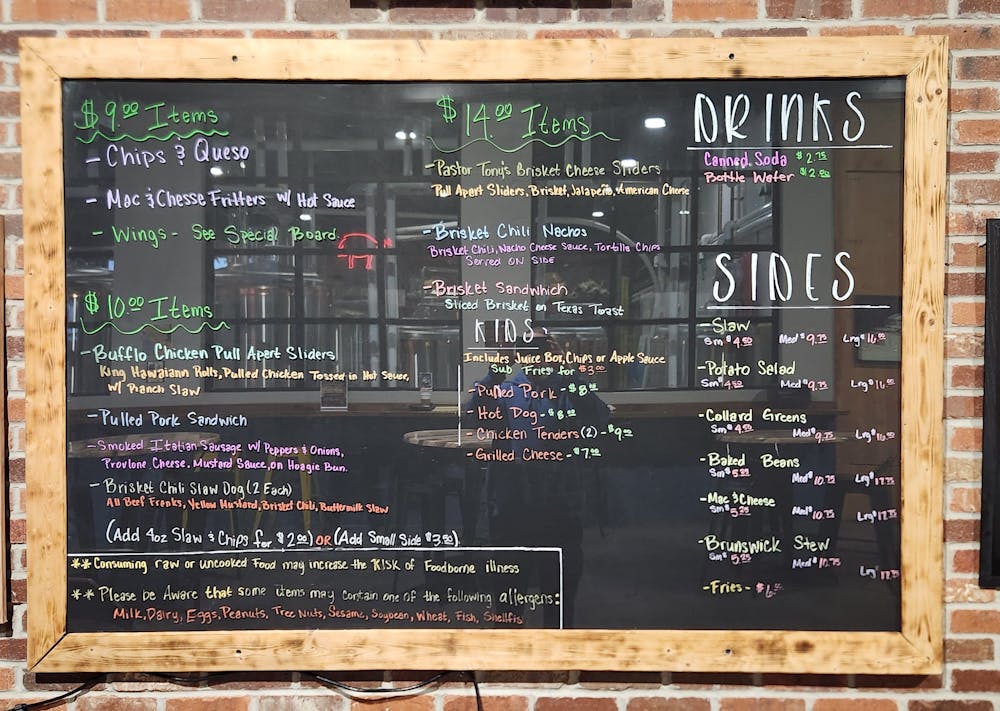 $9.00 Items
- Chips & Queso
- Mac & Chesse Fritters w/ Hot Sauce
- Wings - See Special Board.
$10.00 Items
- Bufflo Chicken Pull Apart Sliders
King Hawaiann Rolls, Pulled Chicken Tossed in Hot Sauce,
w/ Ranch Slaw
- Pulled Pork Sandwich
- Smoked Italian Sausage w/ Peppers & Onions,
Provlone Cheese, Mustard Sauce, on Hoagie Bun.
- Brisket Chili Slaw Dog (2 Each)
All Beef Franks, Yellow Mustard, Brisket Chili, Buttermilk Slaw
(Add 4oz Slaw & Chips for $2.00) OR (Add Small Side $3.50).
** Consuming raw or uncooked Food may increase the RISK of Foodborne illness
** Please be Aware that some items may contain one of the following allergens:
Milk, Dairy, Eggs, Peanuts, Tree Nuts, Sesame, Soybean, Wheat, Fish, Shellfis
$14.00 Items
- Pastor Tony's Brisket Cheese Sliders
Pull Apart Sliders, Brisket, Jalapeño, American Cheese
- Brisket Chili Nachos
Brisket Chili, Nacho Cheese Sauce, Tortilla Chips
Served ON SIDE
- Brisket Sandwhich
Sliced Brisket on Texas Toast
KIDS
Includes Juice Box, Chips or Apple Sauce
Sub Fries for $3.00
- Pulled Pork - $8.00
- Hot Dog - $8.00
- Chicken Tenders (2) - $9.00
- Grilled Cheese - $7.00
DRINKS
Canned Soda $2.75
Bottle Water
SIDES
- Slaw
Sm $4.50 Med $9.75 Lrg
- Potato Salad
Sm $4.50 Med $9.75 Lrg
- Collard Greens
Sm $4.50 Med $9.75 Lrg
- Baked Beans
Sm $5.25 Med $10.75 Lrg
- Mac & Cheese
Sm $5.25 Med $10.75 Lrg
- Brunswick Stew
Sm $5.25 Med $10.75 Lrg
- Fries -